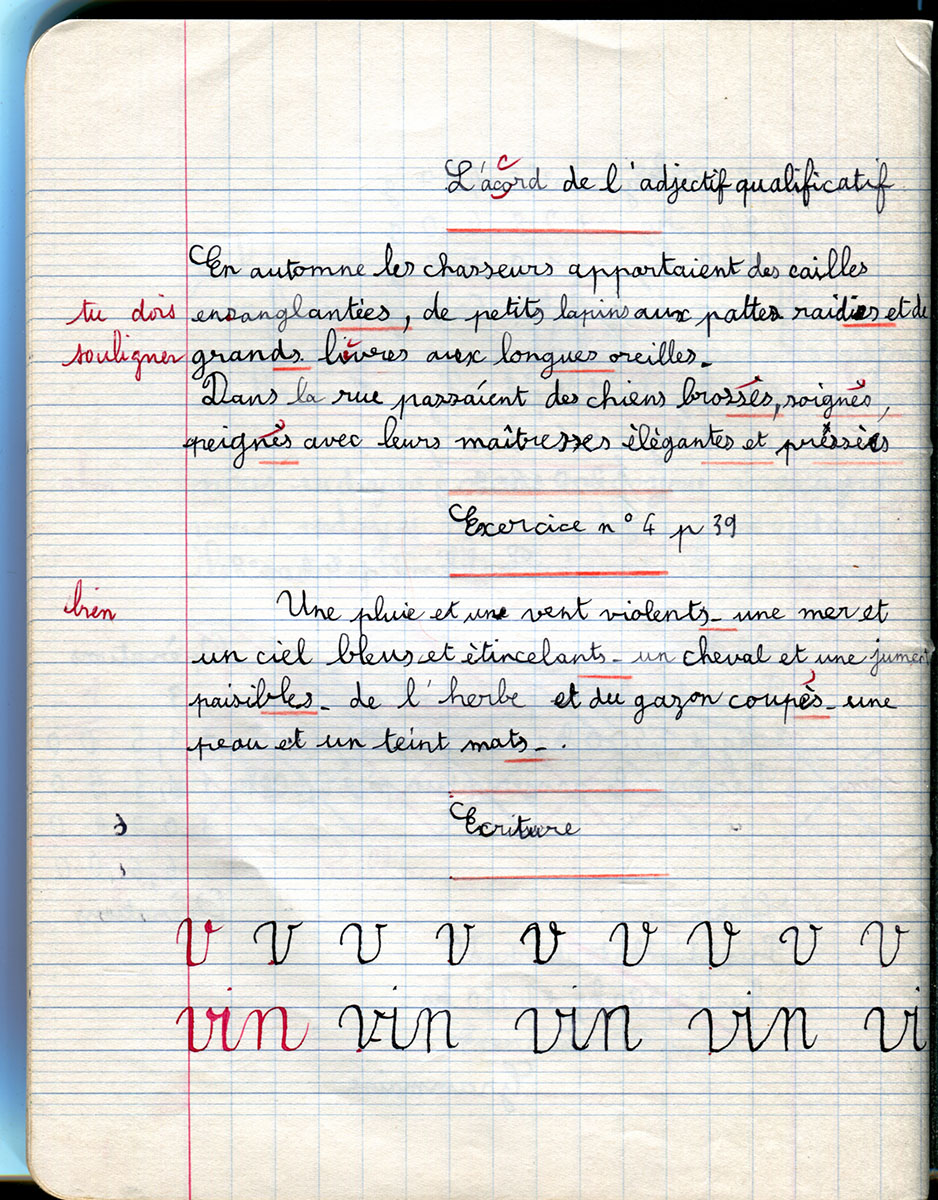 L'acord de l'adjectif qualificatif
c
En automne les chasseurs apportaient des cailles
tu dois ensanglantées, de petits lapins aux pattes raidies et de
souligner grands lièvres aux longues oreilles.
Dans la rue passaient des chiens brossés, soignés,
peignés avec leurs maîtresses élégantes et pressées
Exercice n° 4 p 39
bien Une pluie et une vent violents - une mer et
un ciel bleus et étincelants - un cheval et une jument
paisibles - de l'herbe et du gazon coupés - une
peau et un teint mats - .
Ecriture
v v v v v v v v v
vin vin vin vin vi